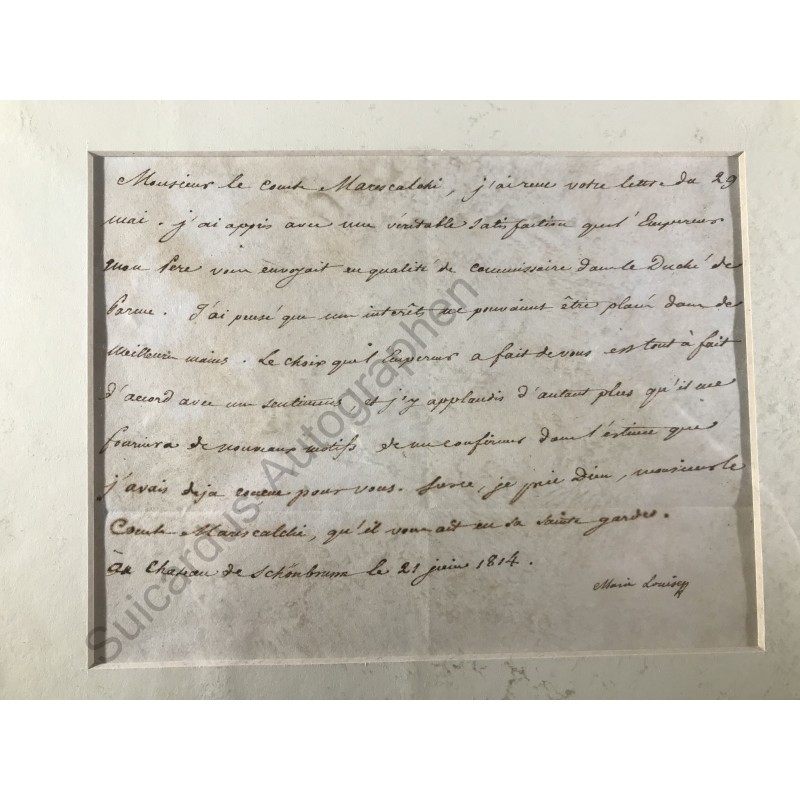 Monsieur le comte Marescalchi, j'ai reçu votre lettre du 29
mai. j'ai appris avec une véritable satisfaction que l'Empereur
mon Père vous envoyait en qualité de commissaire dans le Duché de
Parme. J'ai pensé que mes intérêts ne pouvaient être placés dans de
meilleures mains. Le choix que l'Empereur a fait de vous est tout à fait
d'accord avec mes sentimens et j'y applaudis d'autant plus qu'il me
fournira de nouveaux motifs de me confirmer dans l'estime que
j'avais deja concue pour vous. Sur ce, je prie Dieu, monsieur le
Comte Mariscalchi, qu'il vous ait en sa sainte garde.
au Chateau de Schönbrunn le 21 juin 1814.
Marie Louise
Suicardus-Autographen